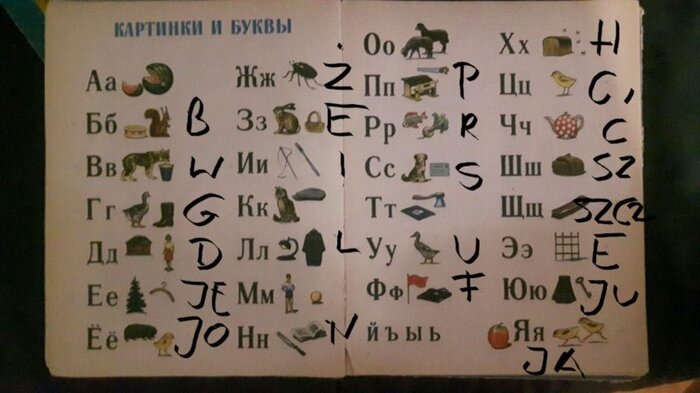 КАРТИНКИ И БУКВЫ
Аа
Бб B
Вв W
Гг G
Дд D
Ее JE
Ёё JO
Жж Ż
Зз E
Ии I
Кк
Лл L
Мм
Нн N
Оо
Пп P
Рр R
Сс S
Тт
Уу U
Фф F
й ъ ы ь
Хх H
Цц C,
Чч C
Шш SZ
Щщ SZCZ
Ээ E
Юю JU
Яя
JA